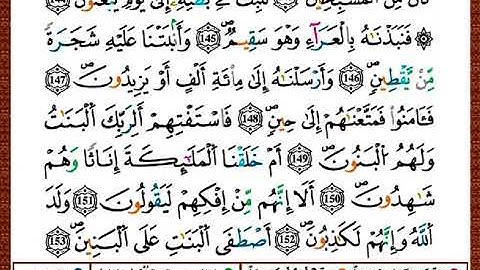 لَلَبِثَ فِي بَطْنِهِۦٓ إِلَىٰ يَوْمِ يُبْعَثُونَ ﴿144﴾
۞ فَنَبَذْنَٰهُ بِٱلْعَرَآءِ وَهُوَ سَقِيمٌ ﴿145﴾ وَأَنۢبَتْنَا عَلَيْهِ شَجَرَةً
مِّن يَقْطِينٍ ﴿146﴾ وَأَرْسَلْنَٰهُ إِلَىٰ مِا۟ئَةِ أَلْفٍ أَوْ يَزِيدُونَ ﴿147﴾
فَـَٔامَنُوا۟ فَمَتَّعْنَٰهُمْ إِلَىٰ حِينٍ ﴿148﴾ فَٱسْتَفْتِهِمْ أَلِرَبِّكَ ٱلْبَنَاتُ
وَلَهُمُ ٱلْبَنُونَ ﴿149﴾ أَمْ خَلَقْنَا ٱلْمَلَٰٓئِكَةَ إِنَٰثًا وَهُمْ
شَٰهِدُونَ ﴿150﴾ أَلَآ إِنَّهُم مِّنْ إِفْكِهِمْ لَيَقُولُونَ ﴿151﴾ وَلَدَ
ٱللَّهُ وَإِنَّهُمْ لَكَٰذِبُونَ ﴿152﴾ أَصْطَفَى ٱلْبَنَاتِ عَلَى ٱلْبَنِينَ ﴿153﴾